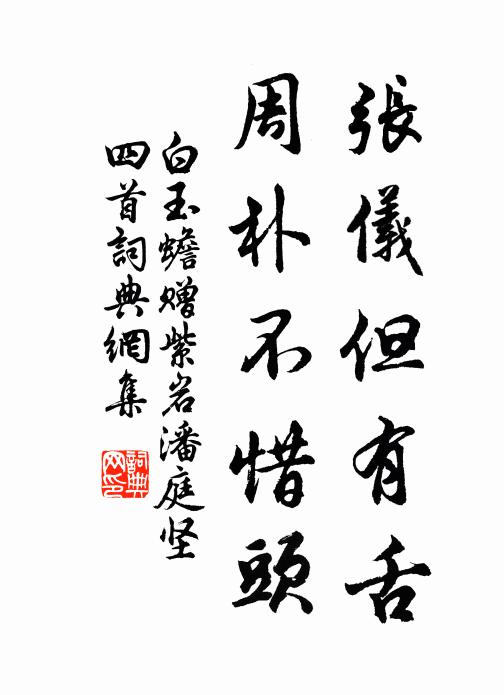 張儀但有舌
周朴不惜頭
白玉蟾赠紫岩潘庭坚
四首詞典網集
詞典
网印